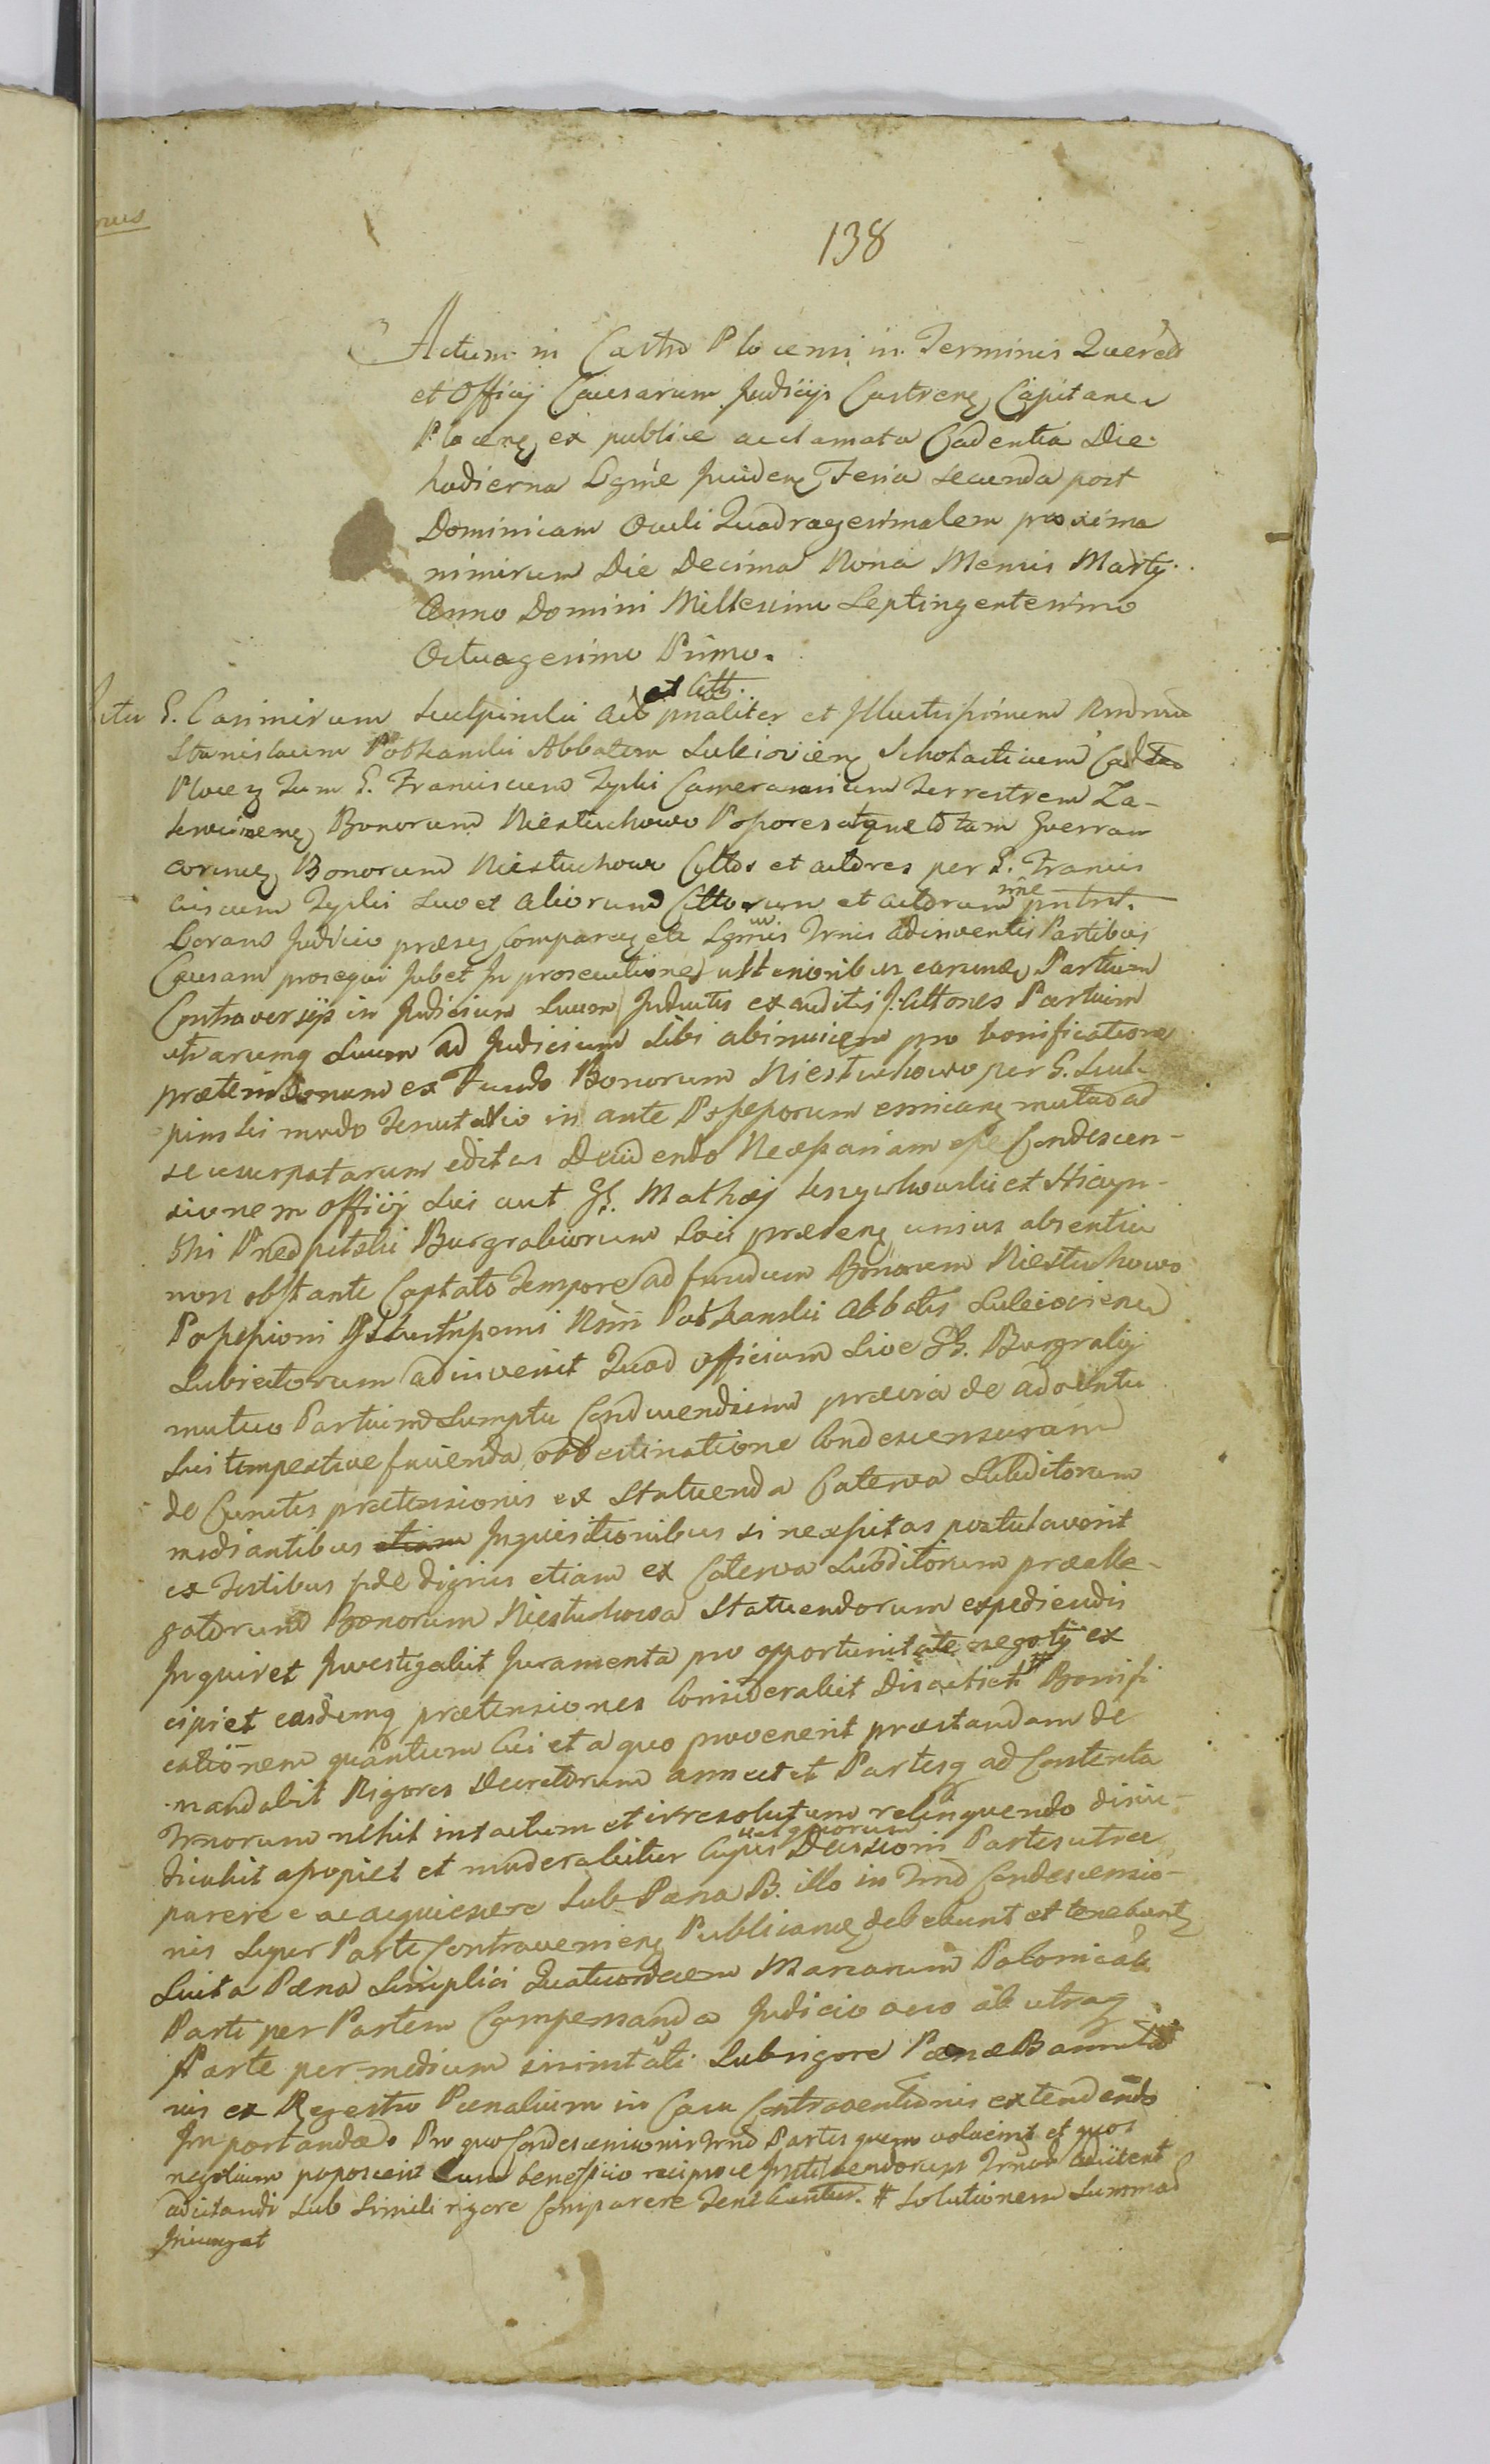 138
Actum in Castro Plocensi in Terminis Querel
et Officij Causarum Judicijs Castren Capitanei
Plocen ex publice acclamata Cadentia Die
hodierna Lgme Inciden Feria secunda post
Dominicam Oculi Quadragesimalem proxima
nimirum Die Decima Nona Mensis Martij
Anno Domini Millesimo Septingentesimo
Octuagesimo Primo.
Inter G. Casimirum Sculpinski Act et Citt. pnaliter et Illustrissimum Rndmum
Stanislaum Potkanski Abbatem Suleiovien Scholasticum Cad
Plocen Tum G. Franciscum Zyski Camerarium Terrestrem Za-
krocimen Bonorum Niestuchowo Possores atque tam
earumq Bonorum Niestuchowo Cittos et actores per G. Francis
ciscum Zyski suo et aliorum Cittorum et actorum nne
Coram Judicio præsen Comparen ete Lgmis Trnis Adinventis Partibus
Causam prosequi Jubet In prosecutione ulterioribus earumq Partium
Controversijs in Judicium suum Inductis exauditis Actiones Partium
utrarumq suum ad Judicium sibi abinvicem pro bonificatione
prætensionum ex Fundo Bonorum Niestuchowo per G. Scul-
pinski modo Tenutario in ante Possessorum mutuo ad
se usurpatarum editas Decidendo Necessariam esse Condescen-
sionem Officij sui aut GG. Mathæj et Hiacyn-
thi Burgrabiorum Loci præsen unius absentia
non obstante Captato Tempore ad fundum Bonorum Niestuchowo
Possessioni Illustrissimi Rsmi Potkanski Abbatis Suleiovien
Subiectorum adinvenit Quod officium sive GG. Burgrabij
mutuo Partium Sumptu Conducendum prævia de adventu
sui tempestive facienda obdestinatione Condescensuram
de Cunctis prætensionis ex Statuenda Caterva Subditorum
mediantibus Inquisitionibus si necessitas postulaverit
ex Testibus fide dignis etiam ex Caterva Subditorum prælle-
gatorum Bonorum Niestuchowa Statuendorum expediendis
Inquiret Investigabit Juramenta pro opportunitate negotij ex
cipiet easdemq prætensiones Considerabit Disartict # Bonifi
cationem quantum Cui et a quo provenerit præstandam de
mandabit Rigores Decretorum annectet Partesq ad Contenta
Trnorum nihil intactum et irresolutum relinquendo diiu-
dicabit apopiet et moderabitur Cujus vel quorum Decisioni Partes utræ
parere e acquiescere sub Pœna B. illo in Trno Condescensio-
nis super Parte Contravenien Publicanæ debebunt et tenebunt
Luita Pæna simplici Quatuordecem Marcarum Polonical
Parti per Partem Compensanda Judicio vero ab utraq
Parte per medium Sub rigore Pœnæ Bannitio
nis ex Regestro Pœnalium in Casu Contraventionis extendendo
Importandæ. Pro quo Condescensionis Trno Partes quem voluerint et quos
negotium poposcerit Cum beneficio reciproce Instituendorum Trnor adcitent
adcitandi sub simili rigore Comparere Tenebuntur. # Solutionem Summa
Iniungat